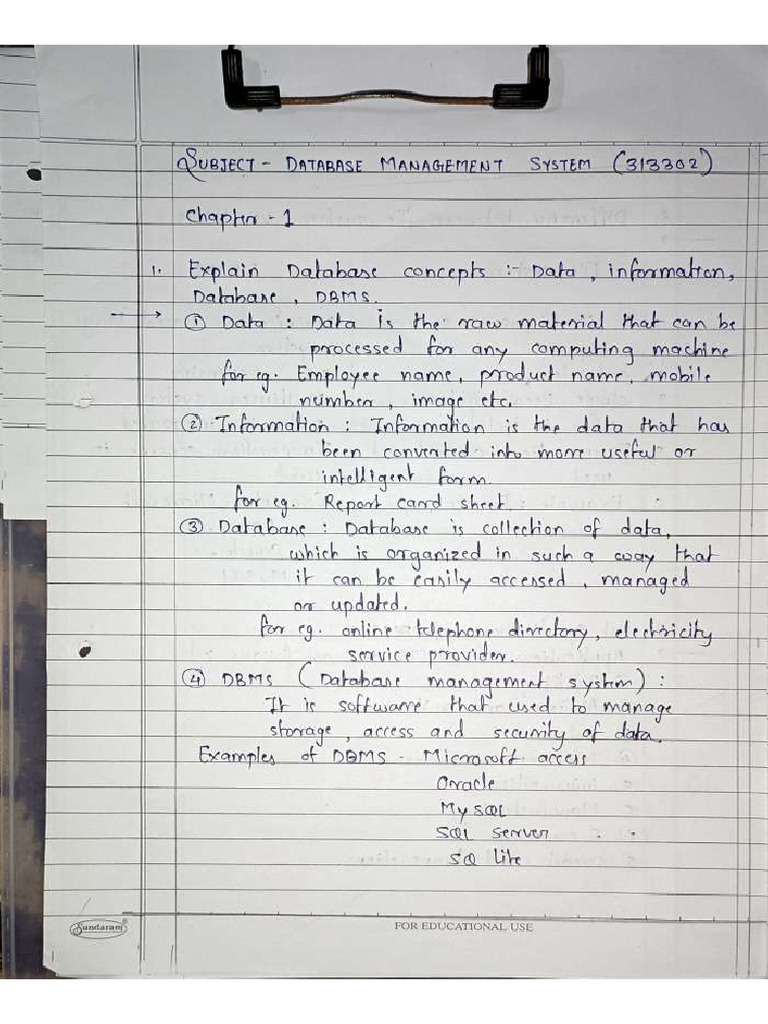 SUBJECT - DATABASE MANAGEMENT SYSTEM (313302)
Chapter - 1
1. Explain Database concepts :- Data, information,
Database, DBMS.
→ ① Data : Data is the raw material that can be
processed for any computing machine
for eg. Employee name, product name, mobile
number, image etc.
② Information : Information is the data that has
been converted into more useful or
intelligent form.
for eg. Report card sheet.
③ Database : Database is collection of data,
which is organized in such a way that
it can be easily accessed, managed
or updated.
for eg. online telephone directory, electricity
service provider.
④ DBMS (Database management system) :
It is software that used to manage
storage, access and security of data.
Examples of DBMS - Microsoft access
Oracle
My SQL
SQL server
SQ lite
Sundaram®
FOR EDUCATIONAL USE